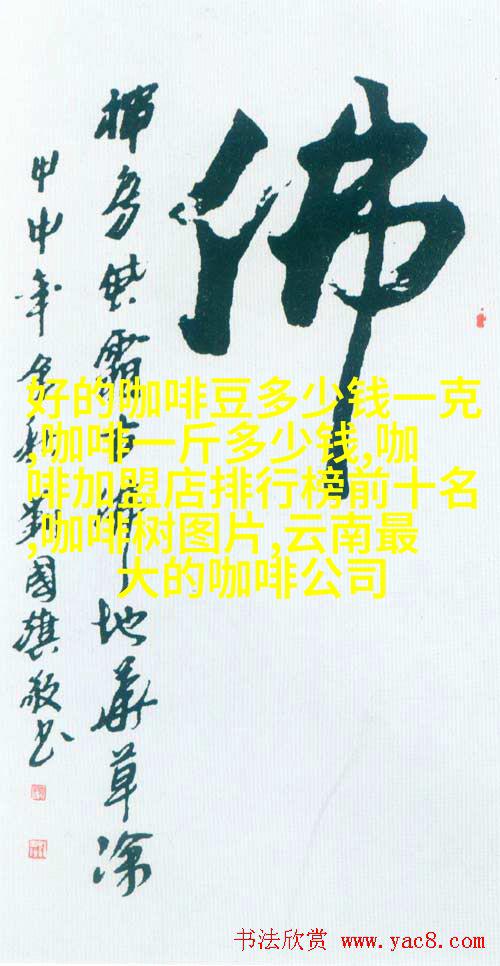 佛
霜地華草
甲申年金秋劉國旗敬书
好的咖啡豆多少钱一克
,咖啡一斤多少钱,咖
啡加盟店排行榜前十名
,咖啡树图片,云南最
大的咖啡公司
书法欣赏 www.yac8.com